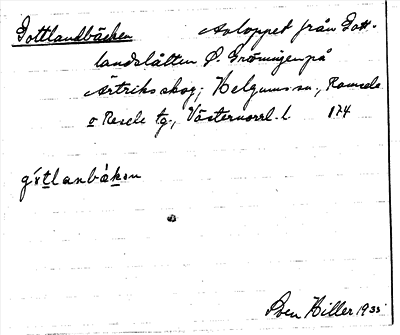 Gottlandbäcken Avloppet från Gott-
landslåtten Ö. Gröningen på
Ärtriks skog; Helgums sn, Ramsele
o Resele tg., Västernorrl. l. 174
Sven Hiller 1935